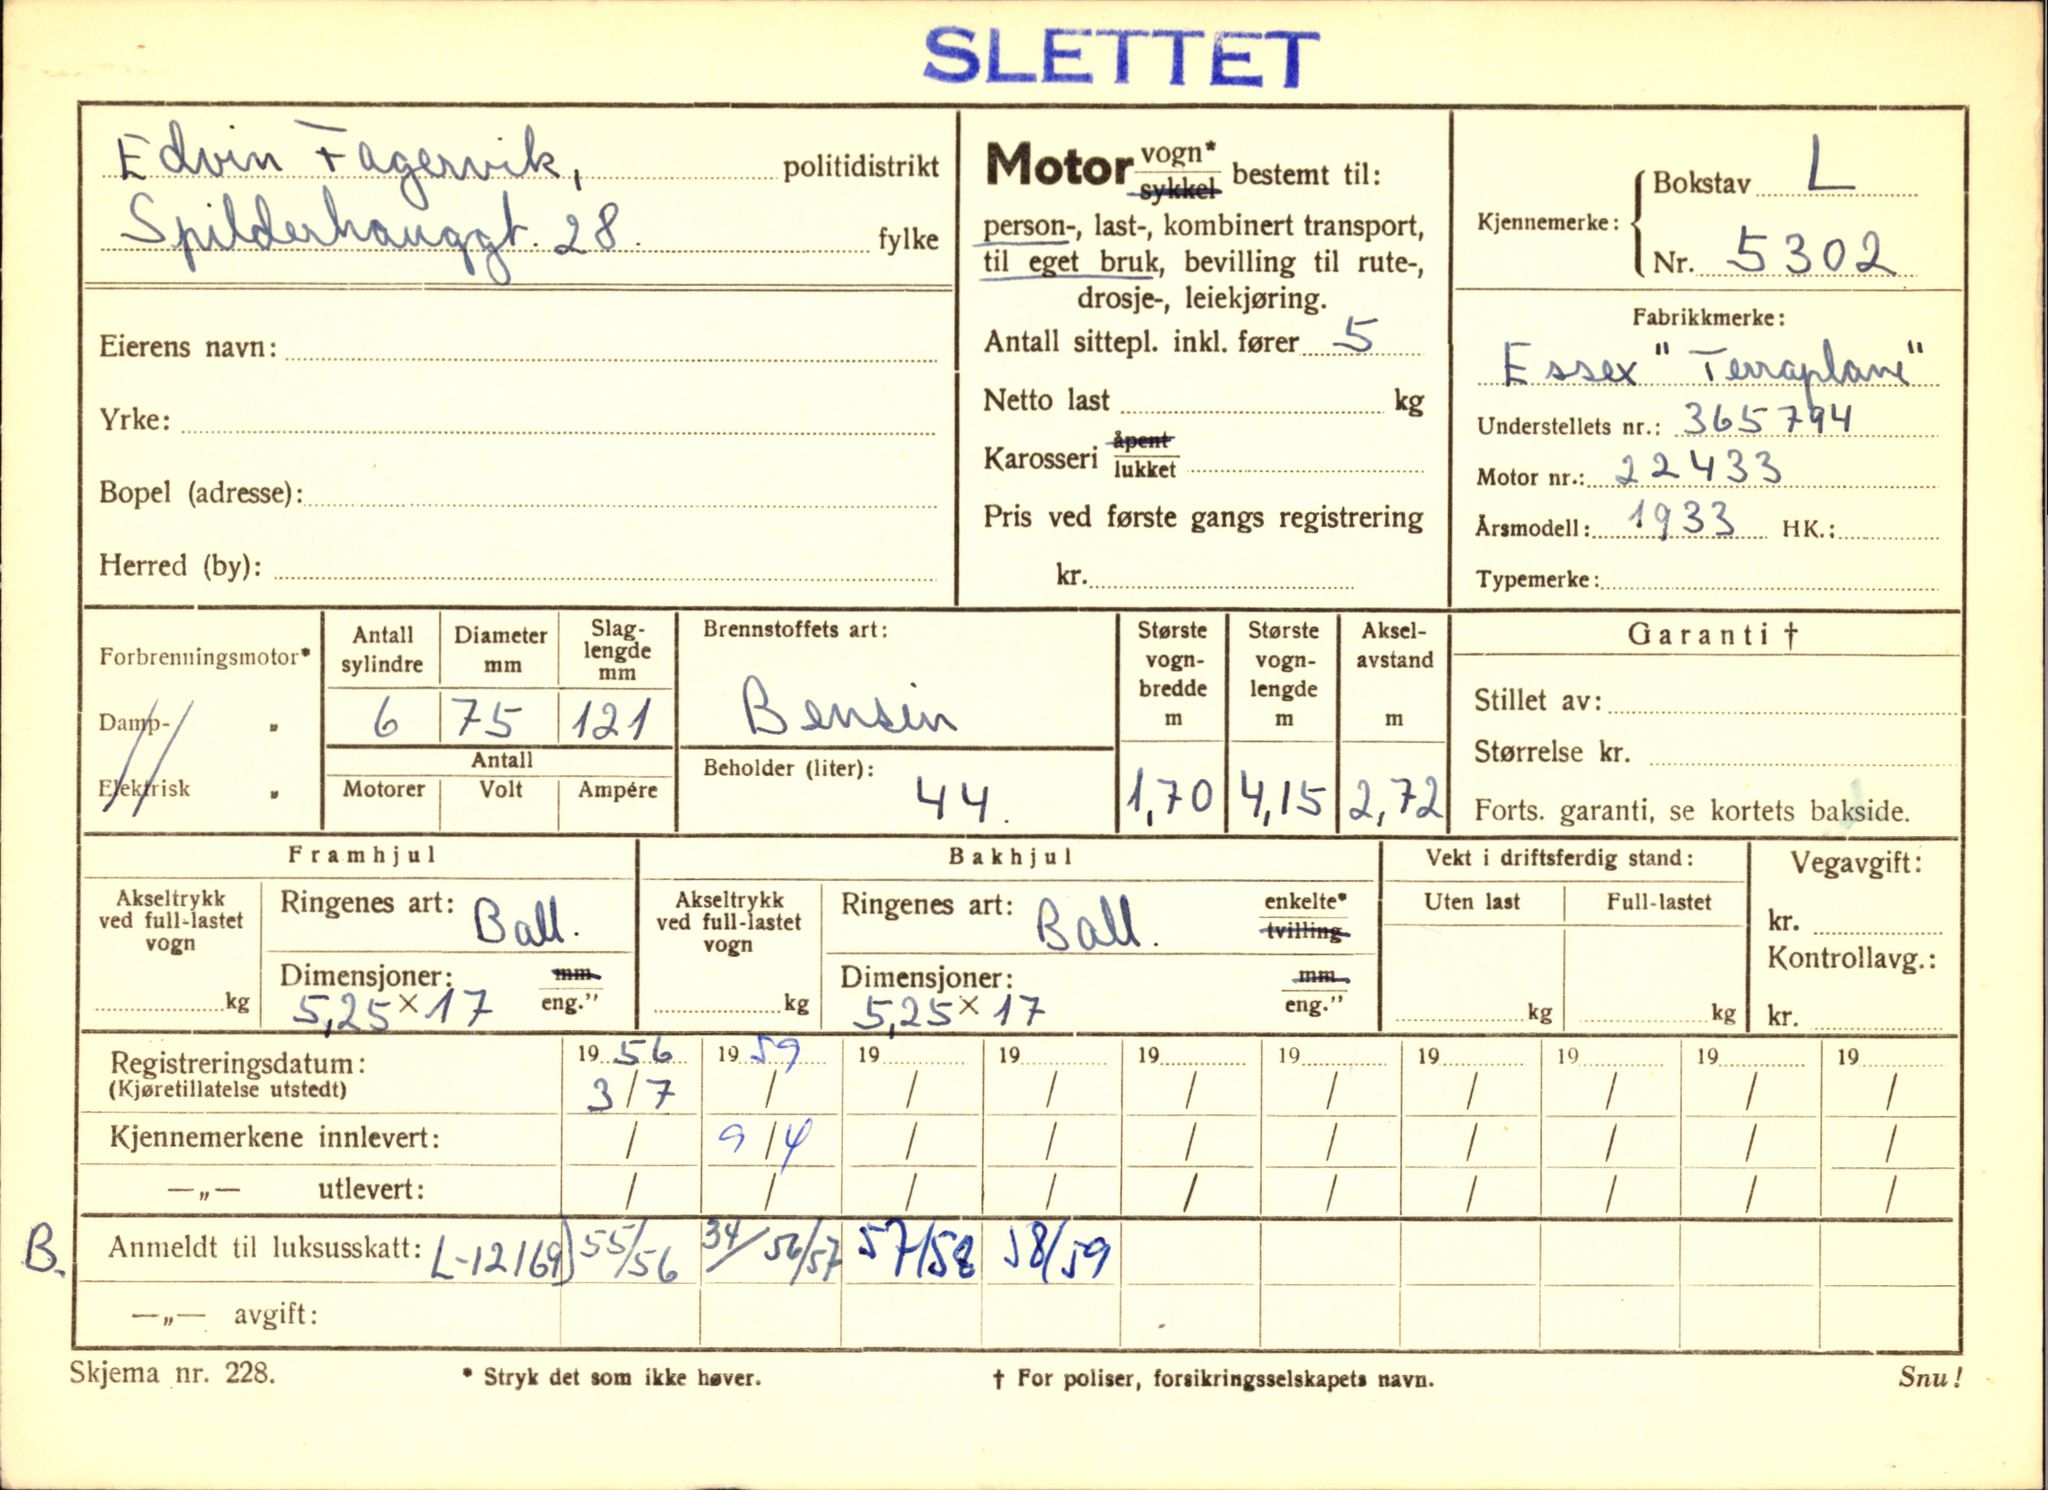 SLETTET
Edvin Fagervik, politidistrikt
Spilderhauggt. 28. fylke
Eierens navn:
Yrke:
Bopel (adresse):
Herred (by):
Motor vogn* sykkel bestemt til:
person-, last-, kombinert transport,
til eget bruk, bevilling til rute-,
drosje-, leiekjøring.
Antall sittepl. inkl. fører 5
Netto last kg
Karosseri åpent lukket
Pris ved første gangs registrering
kr.
Kjennemerke: Bokstav L
Nr. 5302
Fabrikkmerke:
Essex "Terraplane"
Understellets nr.: 365794
Motor nr.: 22433
Årsmodell: 1933 HK.:
Typemerke:
Forbrenningsmotor*
Damp- „
Elektrisk „
Antall sylindre
Diameter mm
Slag-
lengde
mm
6 75 121
Antall
Motorer Volt Ampére
Brennstoffets art:
Bensin
Beholder (liter):
44.
Største
vogn-
bredde
m
1,70
Største
vogn-
lengde
m
4,15
Aksel-
avstand
m
2,72
Garanti †
Stillet av:
Størrelse kr.
Forts. garanti, se kortets bakside.
Framhjul
Akseltrykk
ved full-lastet
vogn
kg
Ringenes art: Ball.
Dimensjoner: mm
5,25 x 17 eng."
Bakhjul
Akseltrykk
ved full-lastet
vogn
kg
Ringenes art: Ball. enkelte*
tvilling
Dimensjoner: mm
5,25 x 17 eng."
Vekt i driftsferdig stand:
Uten last Full-lastet
kg kg
Vegavgift:
kr.
Kontrollavg.:
kr.
Registreringsdatum: 19 56 19 59 19 19 19 19 19 19 19 19
(Kjøretillatelse utstedt) 3/7 / / / / / / / / /
Kjennemerkene innlevert: / 9/4 / / / / / / / /
—„— utlevert: / / / / / / / / / /
B. Anmeldt til luksusskatt: L-12169) 55/56 34/56/57 57/58 58/59
—„— avgift:
Skjema nr. 228. * Stryk det som ikke høver. † For poliser, forsikringsselskapets navn. Snu!